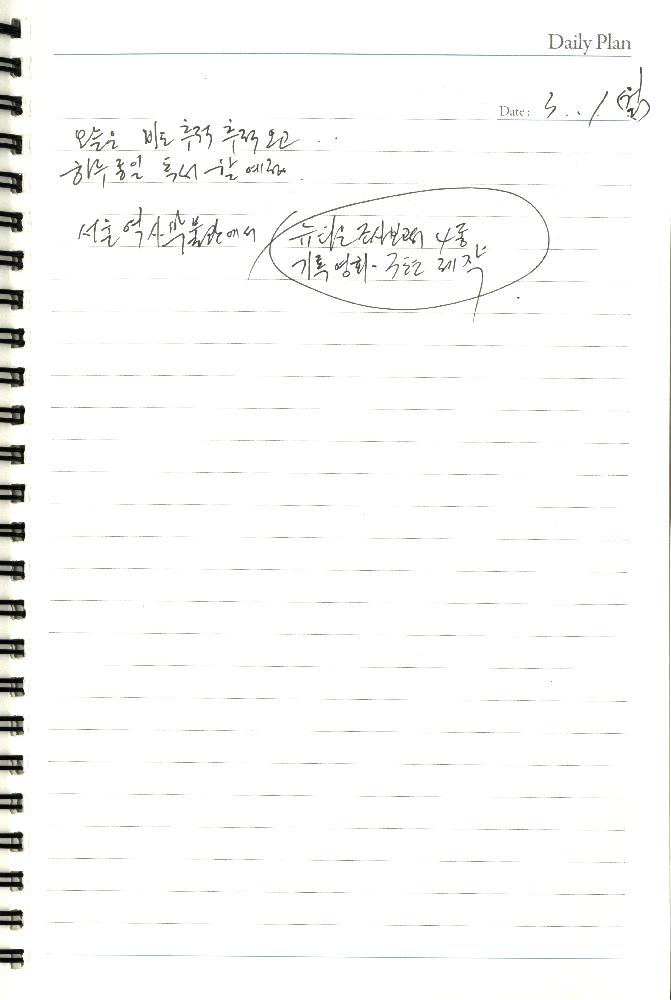 Daily Plan
Date : 3 . . 1 (월)
오늘은 비도 추적 추적 오고 . .
하루 종일 독서 할 예정.
서울역사박물관에서
뉴타운 조사보고서 4종
기록영화 - 구도 제작